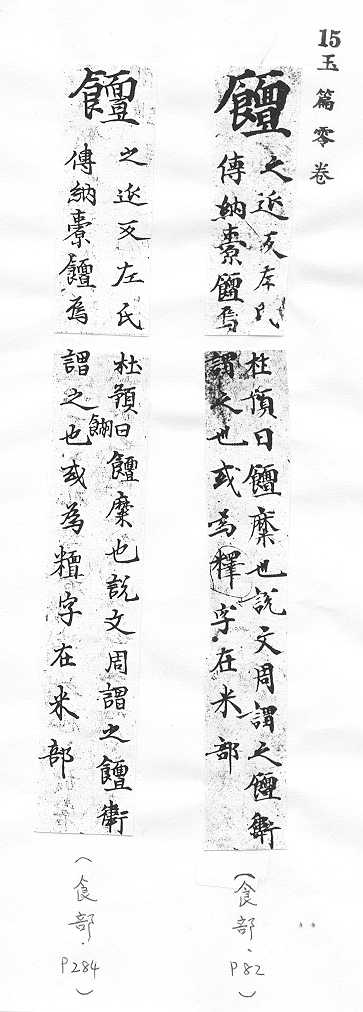 15玉篇零卷
饘
之延反左氏
傳納橐饘焉
杜預曰饘糜也說文周謂之饘衛
謂之也或為釋字在米部
(食部．P82)
饘
之延反左氏
傳納橐饘焉
杜預曰饘糜也說文周謂之饘衛
餬
謂之也或為字在米部
(食部．P284)